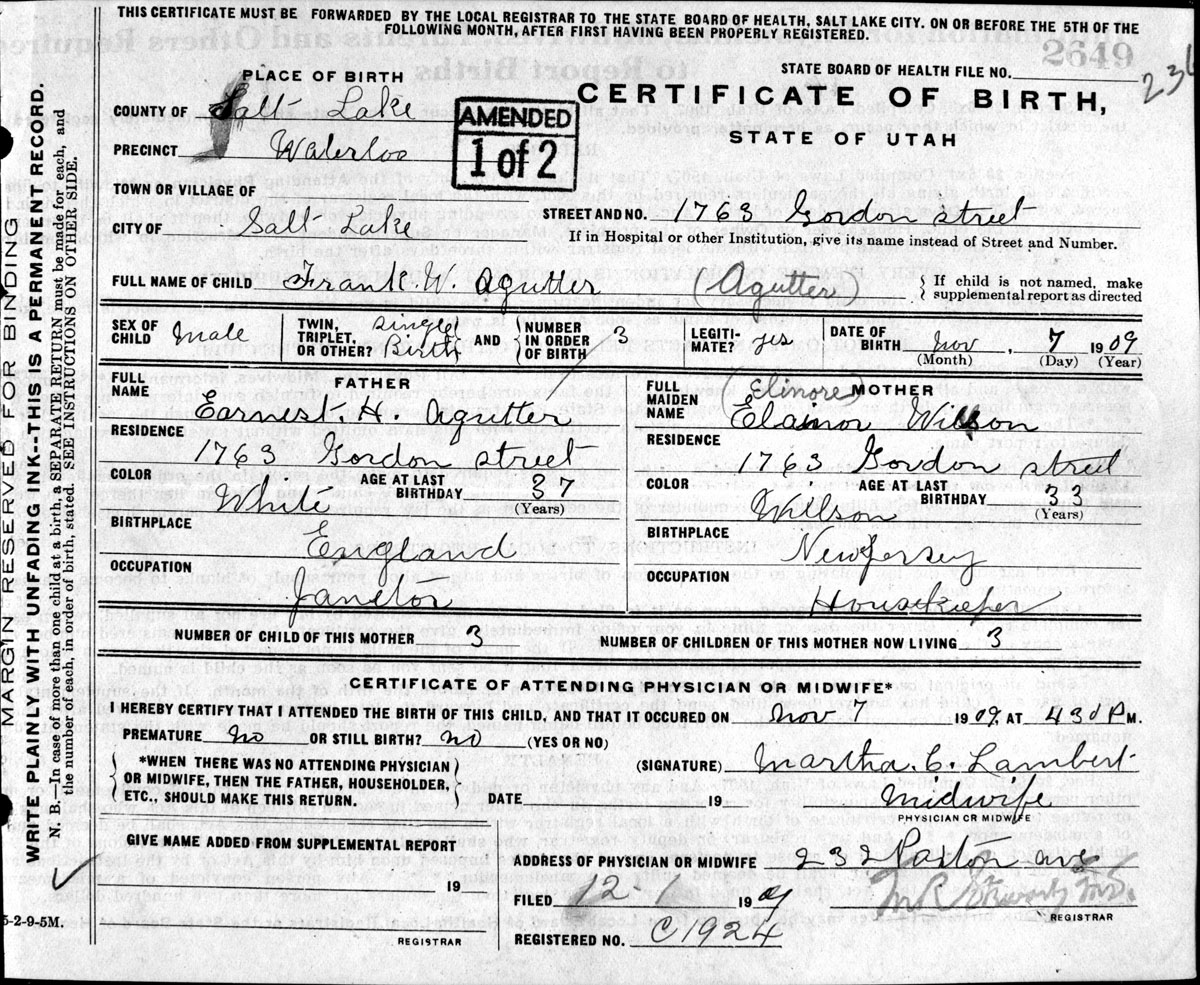 THIS CERTIFICATE MUST BE FORWARDED BY THE LOCAL REGISTRAR TO THE STATE BOARD OF HEALTH, SALT LAKE CITY. ON OR BEFORE THE 5TH OF THE
FOLLOWING MONTH, AFTER FIRST HAVING BEEN PROPERLY REGISTERED.
2649
STATE BOARD OF HEALTH FILE NO.
236
PLACE OF BIRTH
CERTIFICATE OF BIRTH,
STATE OF UTAH
COUNTY OF Salt Lake
AMENDED
1 of 2
PRECINCT Waterloo
TOWN OR VILLAGE OF
CITY OF Salt Lake STREET AND NO. 1763 Gordon street
If in Hospital or other Institution, give its name instead of Street and Number.
FULL NAME OF CHILD Frank. W. Agutter (Agutter) If child is not named, make
supplemental report as directed
SEX OF CHILD Male TWIN, TRIPLET, OR OTHER? Single Birth AND NUMBER IN ORDER OF BIRTH 3 LEGITI-MATE? yes DATE OF BIRTH Nov, 7 1909
(Month) (Day) (Year)
FULL NAME FATHER
Earnest. H. Agutter
RESIDENCE
1763 Gordon street
COLOR White AGE AT LAST BIRTHDAY 37
(Years)
BIRTHPLACE
England
OCCUPATION
Janitor
FULL MAIDEN NAME Elinore MOTHER
Elainor Willson
RESIDENCE
1763 Gordon street
COLOR Willson AGE AT LAST BIRTHDAY 33
(Years)
BIRTHPLACE
New Jersey
OCCUPATION
Housekeeper
NUMBER OF CHILD OF THIS MOTHER 3 NUMBER OF CHILDREN OF THIS MOTHER NOW LIVING 3
CERTIFICATE OF ATTENDING PHYSICIAN OR MIDWIFE*
I HEREBY CERTIFY THAT I ATTENDED THE BIRTH OF THIS CHILD, AND THAT IT OCCURED ON Nov 7 1909, AT 430 P M.
PREMATURE no OR STILL BIRTH? no (YES OR NO)
*WHEN THERE WAS NO ATTENDING PHYSICIAN
OR MIDWIFE, THEN THE FATHER, HOUSEHOLDER,
ETC. SHOULD MAKE THIS RETURN.
(SIGNATURE) Martha. C. Lambert
DATE 19 Midwife
PHYSICIAN OR MIDWIFE
GIVE NAME ADDED FROM SUPPLEMENTAL REPORT
19
REGISTRAR
ADDRESS OF PHYSICIAN OR MIDWIFE 232 Paxton ave
FILED 12-1 1909
REGISTRAR
REGISTERED NO. C1924
MARGIN RESERVED FOR BINDING
WRITE PLAINLY WITH UNFADING INK--THIS IS A PERMANENT RECORD.
N. B.—In case of more than one child at a birth, a SEPARATE RETURN must be made for each, and
the number of each, in order of birth, stated. SEE INSTRUCTIONS ON OTHER SIDE.
5-2-9-5M.